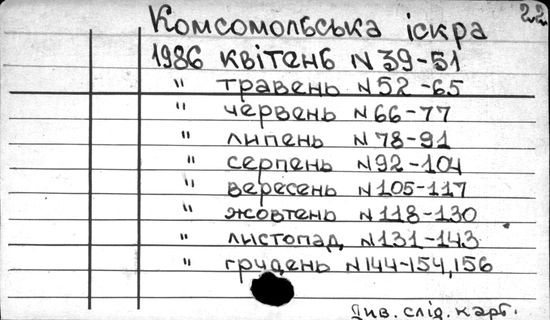 22
Комсомольська іскра
1986 квітень N 39-51
" травень N 52-65
" червень N 66-77
" липень N 78-91
" серпень N 92-104
" вересень N 105-117
" жовтень N 118-130
" листопад N 131-143
" грудень N 144-154, 156
Див. слід. карт.